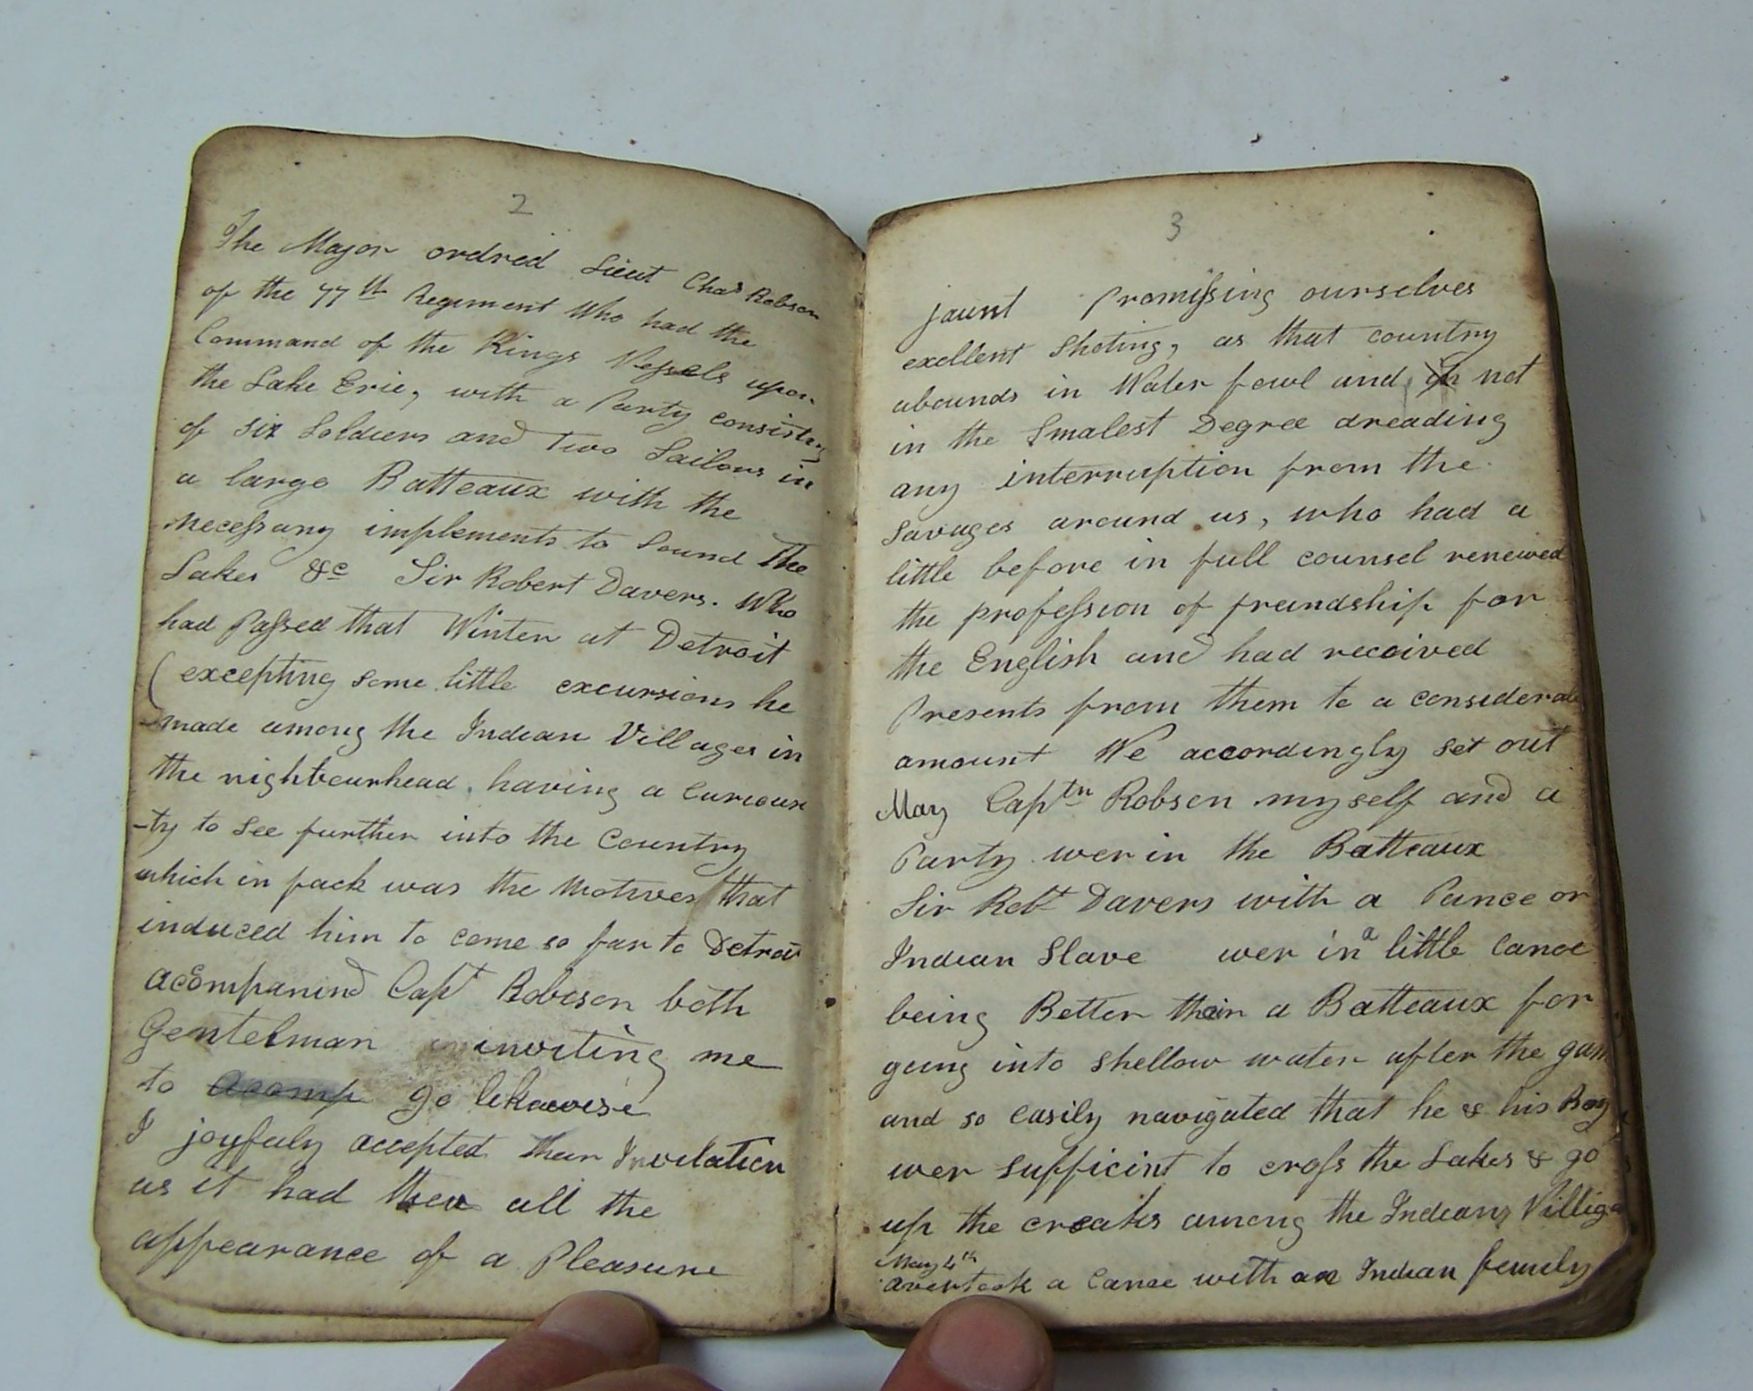 2
The Major ordred Lieut Chas Robson
of the 77th Regiment Who had the
Command of the Kings Vessels upon
the Lake Erie, with a Party consisting
of six Soldiers and Two Sailors in
a large Batteaux with the
necessary implements to Sound The
Lakes &c Sir Robert Davers. Who
had Passed that Winter at Detroit
(excepting some little excursions he
-made among the Indian Villages in
the nightbourhead. having a Curiousi
-ty to See further into the Country
which in fack was the Motives that
induced him to come so far to Detroit
acompanind Capt Robison both
Gentelman inviting me
to acomp go likawise
I joyfuly accepted their Invitation
as it had then all the
appearance of a Pleasure
3
jaunt Promissing ourselves
exellent Shoting, as that country
abounds in Water fowl and not
in the Smalest Degree dreading
any interruption from the
Savages around us, who had a
little before in full counsel renewed
the profession of freindship for
the English and had received
Presents from them to a considerable
amount We accordingly set out
May Captn Robson myself and a
Party wer in the Batteaux
Sir Robt Davers with a Pance or
Indian Slave wer in a little Canoe
being Better than a Batteaux for
going into shellow water after the game
and so easily navigated that he & his Boy
wer sufficint to cross the Lakes & go
up the creaks among the Indians Village
May 4th
overtook a Canoe with an Indian family